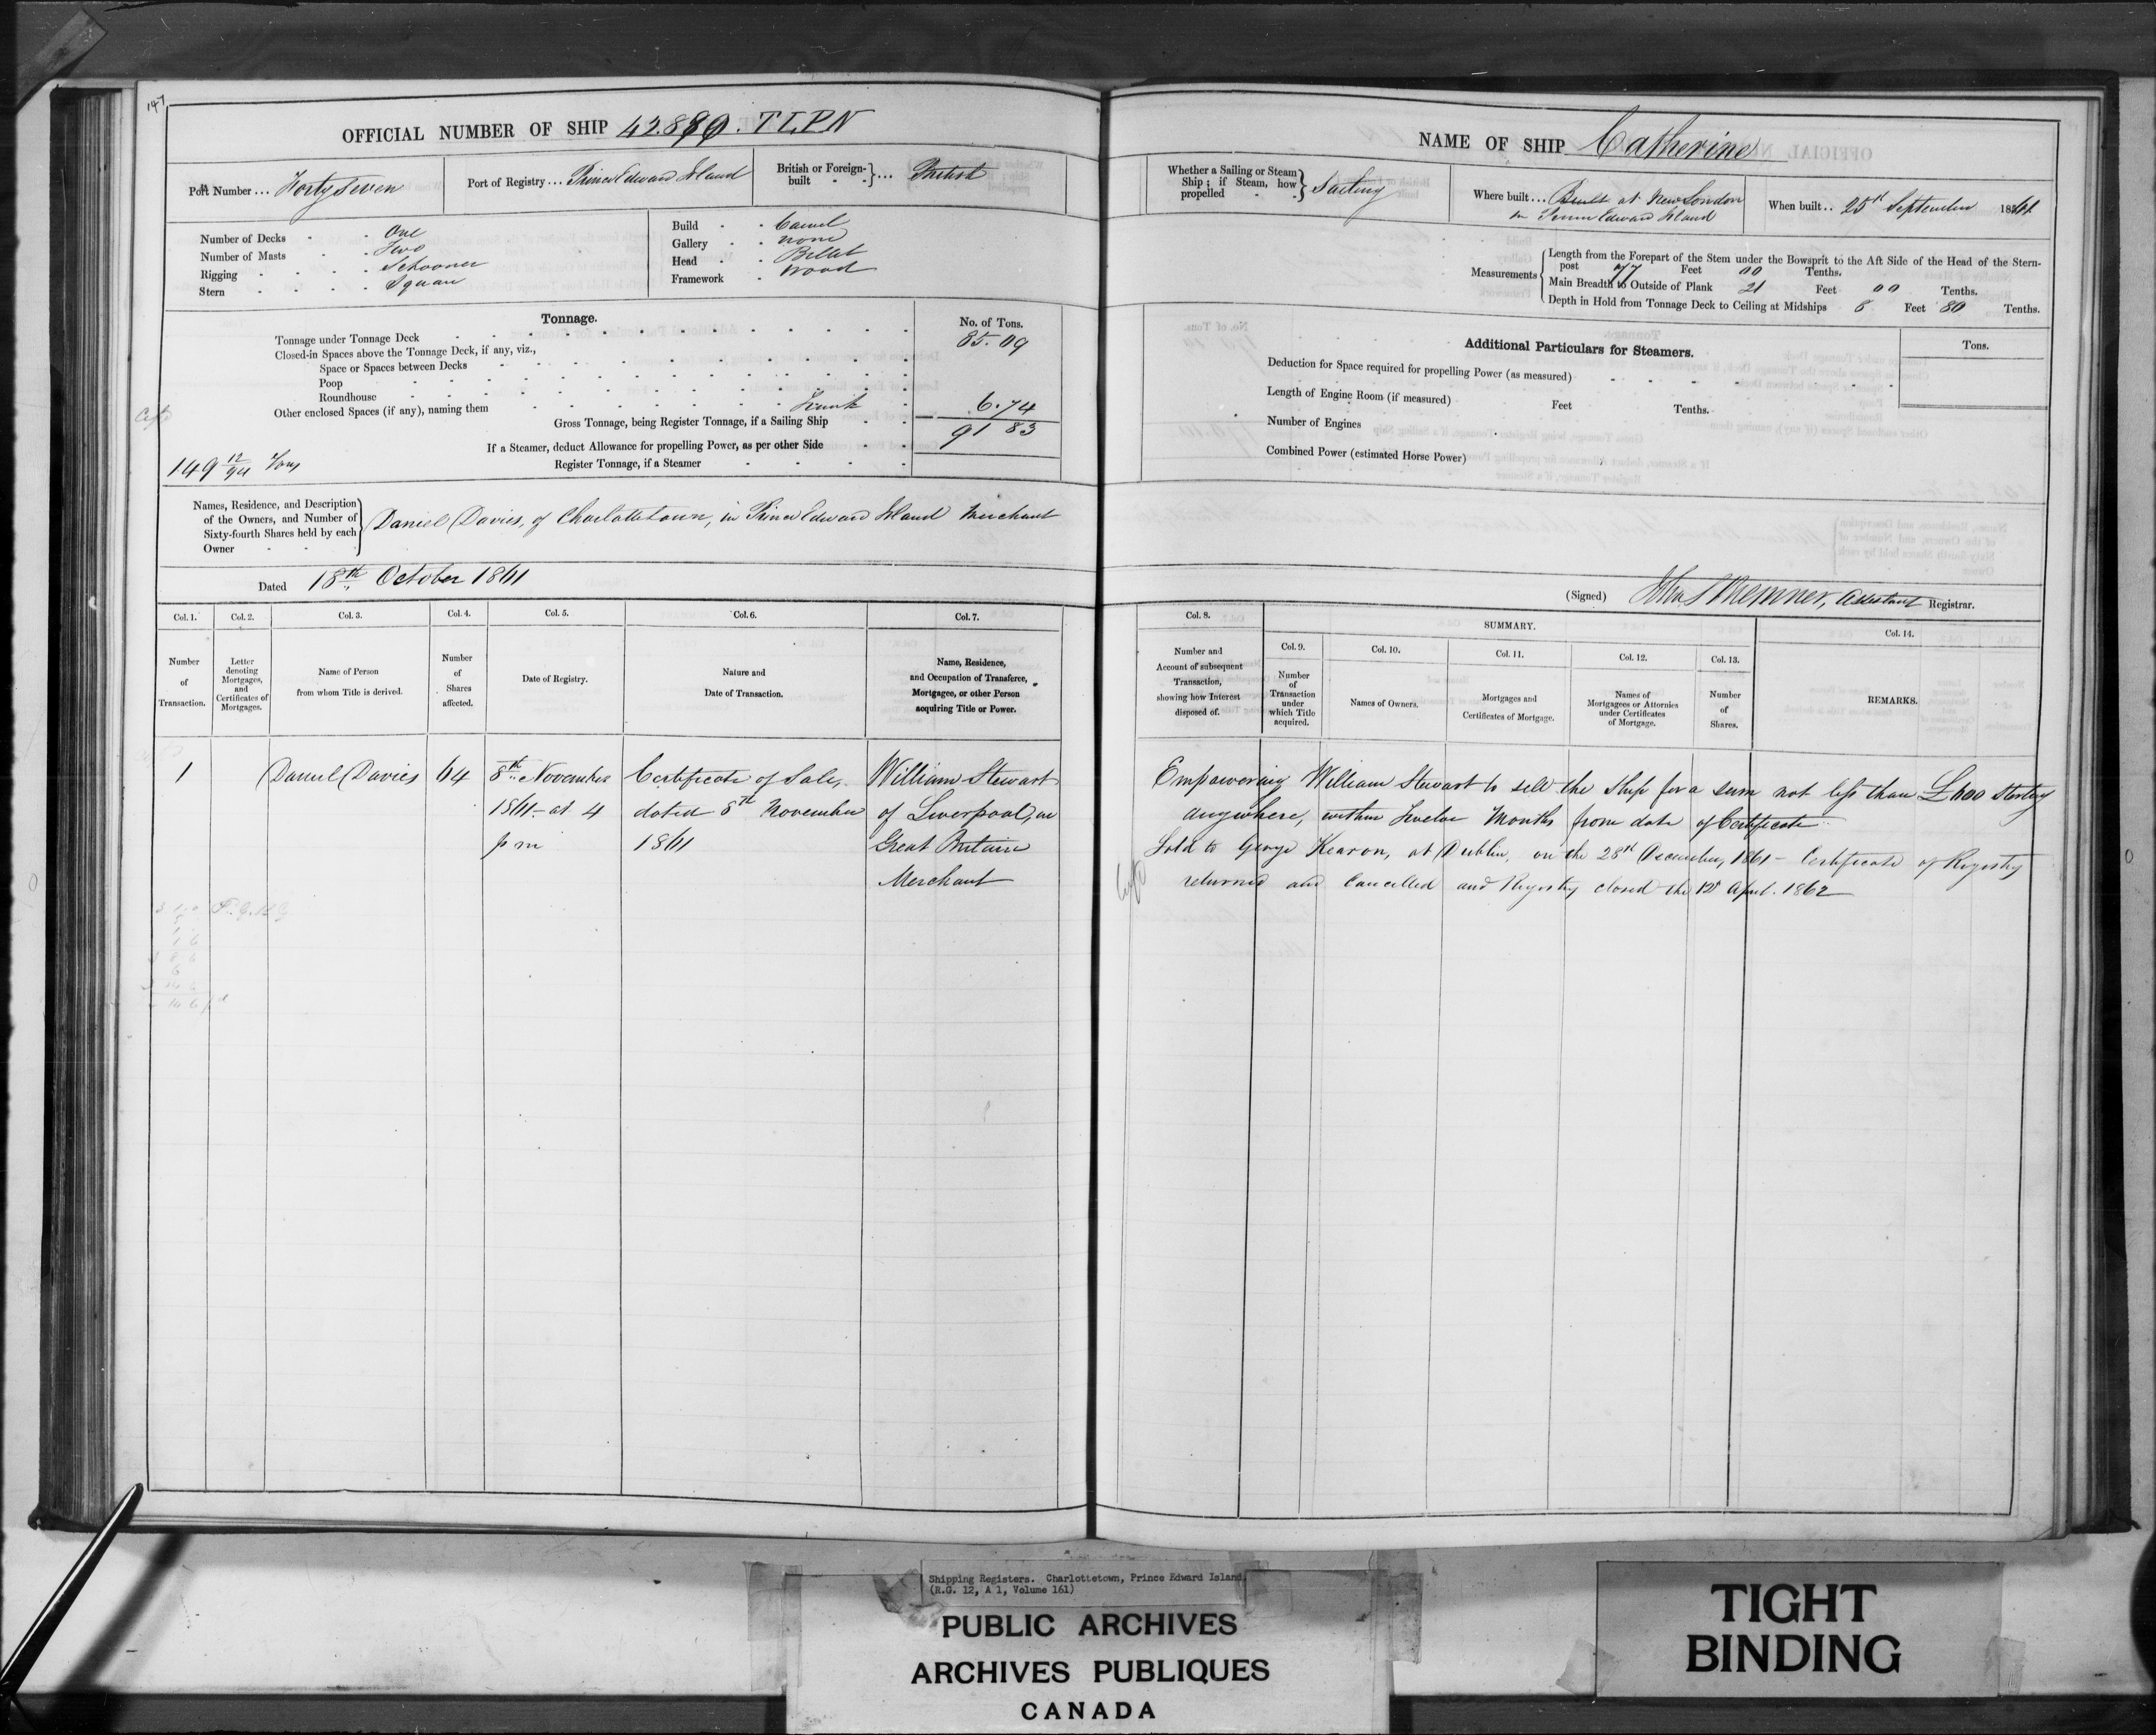 147
OFFICIAL NUMBER OF SHIP 42.889. TLPN
Port Number ... Forty Seven
Port of Registry ... Prince Edward Island
British or Foreign-built ... British
Number of Decks - One
Number of Masts - Two
Rigging - Schooner
Stern - Square
Build - Carvel
Gallery - None
Head - Billet
Framework - Wood
Tonnage.
No. of Tons.
Tonnage under Tonnage Deck 85.09
Closed-in Spaces above the Tonnage Deck, if any, viz.,
Space or Spaces between Decks
Poop
Roundhouse
Other enclosed Spaces (if any), naming them Trunk 6.74
Gross Tonnage, being Register Tonnage, if a Sailing Ship 91 83
If a Steamer, deduct Allowance for propelling Power, as per other Side
Register Tonnage, if a Steamer
149 12/94 Tons
Names, Residence, and Description of the Owners, and Number of Sixty-fourth Shares held by each Owner
Daniel Davies, of Charlottetown, in Prince Edward Island Merchant
Dated 18th October 1861
Col. 1. Col. 2. Col. 3. Col. 4. Col. 5. Col. 6. Col. 7.
Number of Transaction.
Letter denoting Mortgages, and Certificates of Mortgages.
Name of Person from whom Title is derived.
Number of Shares affected.
Date of Registry.
Nature and Date of Transaction.
Name, Residence, and Occupation of Transferee, Mortgagee, or other Person acquiring Title or Power.
1 Daniel Davies 64 8th November Certificate of Sale, William Stewart
1861 - at 4 dated 8th November of Liverpool, in
p m 1861 Great Britain
Merchant
NAME OF SHIP Catherine
Whether a Sailing or Steam Ship; if Steam, how propelled Sailing
Where built ... Built at New London
in Prince Edward Island
When built .. 25th September 1861
Measurements
Length from the Forepart of the Stem under the Bowsprit to the Aft Side of the Head of the Stern-
post 77 Feet 00 Tenths.
Main Breadth to Outside of Plank 21 Feet 00 Tenths.
Depth in Hold from Tonnage Deck to Ceiling at Midships 8 Feet 80 Tenths.
Additional Particulars for Steamers.
Tons.
Deduction for Space required for propelling Power (as measured)
Length of Engine Room (if measured) Feet Tenths.
Number of Engines
Combined Power (estimated Horse Power)
(Signed) Assistant Registrar.
Col. 8. SUMMARY. Col. 14.
Col. 9. Col. 10. Col. 11. Col. 12. Col. 13.
Number and Account of subsequent Transaction, showing how Interest disposed of.
Number of Transaction under which Title acquired.
Names of Owners.
Mortgages and Certificates of Mortgage.
Names of Mortgagees or Attornies under Certificates of Mortgage.
Number of Shares.
REMARKS.
Empowering William Stewart to sell the Ship for a sum not less than £600 Sterling
anywhere, within Twelve Months from date of Certificate
Sold to George Kearon, at Dublin, on the 28th December, 1861 - Certificate of Registry
returned and Cancelled and Registry closed the April. 1862
Shipping Registers. Charlottetown, Prince Edward Island.
(R.G. 12, A 1, Volume 161)
PUBLIC ARCHIVES
ARCHIVES PUBLIQUES
CANADA
TIGHT
BINDING